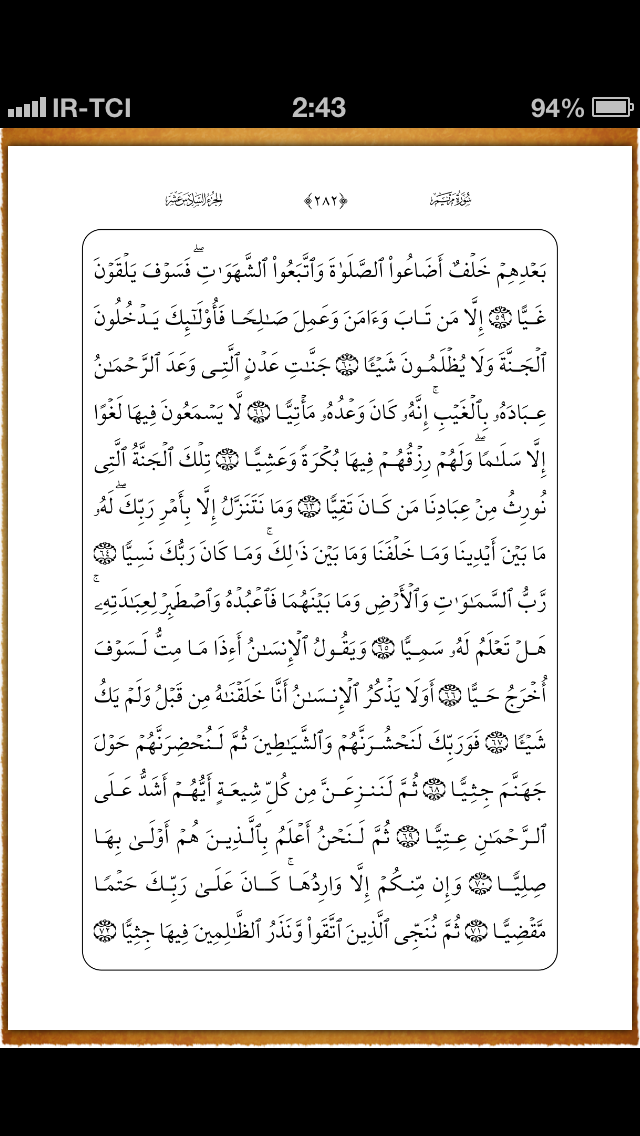 IR-TCI 2:43 94%
سُورَةُ مَرْيَم ﴿٢٨٢﴾ الجُزءُ السَّادِسَ عَشَرَ
بَعۡدِهِمۡ خَلۡفٌ أَضَاعُوا۟ ٱلصَّلَوٰةَ وَٱتَّبَعُوا۟ ٱلشَّهَوَٰتِۖ فَسَوۡفَ يَلۡقَوۡنَ
غَيًّا ٥٩ إِلَّا مَن تَابَ وَءَامَنَ وَعَمِلَ صَـٰلِحًا فَأُو۟لَـٰٓئِكَ يَدۡخُلُونَ
ٱلۡجَنَّةَ وَلَا يُظۡلَمُونَ شَيۡـًٔا ٦٠ جَنَّـٰتِ عَدۡنٍ ٱلَّتِى وَعَدَ ٱلرَّحۡمَـٰنُ
عِبَادَهُۥ بِٱلۡغَيۡبِۚ إِنَّهُۥ كَانَ وَعۡدُهُۥ مَأۡتِيًّا ٦١ لَّا يَسۡمَعُونَ فِيهَا لَغۡوًا
إِلَّا سَلَـٰمًاۖ وَلَهُمۡ رِزۡقُهُمۡ فِيهَا بُكۡرَةً وَعَشِيًّا ٦٢ تِلۡكَ ٱلۡجَنَّةُ ٱلَّتِى
نُورِثُ مِنۡ عِبَادِنَا مَن كَانَ تَقِيًّا ٦٣ وَمَا نَتَنَزَّلُ إِلَّا بِأَمۡرِ رَبِّكَۖ لَهُۥ
مَا بَيۡنَ أَيۡدِينَا وَمَا خَلۡفَنَا وَمَا بَيۡنَ ذَٰلِكَۚ وَمَا كَانَ رَبُّكَ نَسِيًّا ٦٤
رَّبُّ ٱلسَّمَـٰوَٰتِ وَٱلۡأَرۡضِ وَمَا بَيۡنَهُمَا فَٱعۡبُدۡهُ وَٱصۡطَبِرۡ لِعِبَـٰدَتِهِۦۚ
هَلۡ تَعۡلَمُ لَهُۥ سَمِيًّا ٦٥ وَيَقُولُ ٱلۡإِنسَـٰنُ أَءِذَا مَا مِتُّ لَسَوۡفَ
أُخۡرَجُ حَيًّا ٦٦ أَوَلَا يَذۡكُرُ ٱلۡإِنسَـٰنُ أَنَّا خَلَقۡنَـٰهُ مِن قَبۡلُ وَلَمۡ يَكُ
شَيۡـًٔا ٦٧ فَوَرَبِّكَ لَنَحۡشُرَنَّهُمۡ وَٱلشَّيَـٰطِينَ ثُمَّ لَنُحۡضِرَنَّهُمۡ حَوۡلَ
جَهَنَّمَ جِثِيًّا ٦٨ ثُمَّ لَنَنزِعَنَّ مِن كُلِّ شِيعَةٍ أَيُّهُمۡ أَشَدُّ عَلَى
ٱلرَّحۡمَـٰنِ عِتِيًّا ٦٩ ثُمَّ لَنَحۡنُ أَعۡلَمُ بِٱلَّذِينَ هُمۡ أَوۡلَىٰ بِهَا
صِلِيًّا ٧٠ وَإِن مِّنكُمۡ إِلَّا وَارِدُهَاۚ كَانَ عَلَىٰ رَبِّكَ حَتۡمًا
مَّقۡضِيًّا ٧١ ثُمَّ نُنَجِّى ٱلَّذِينَ ٱتَّقَوا۟ وَّنَذَرُ ٱلظَّـٰلِمِينَ فِيهَا جِثِيًّا ٧٢